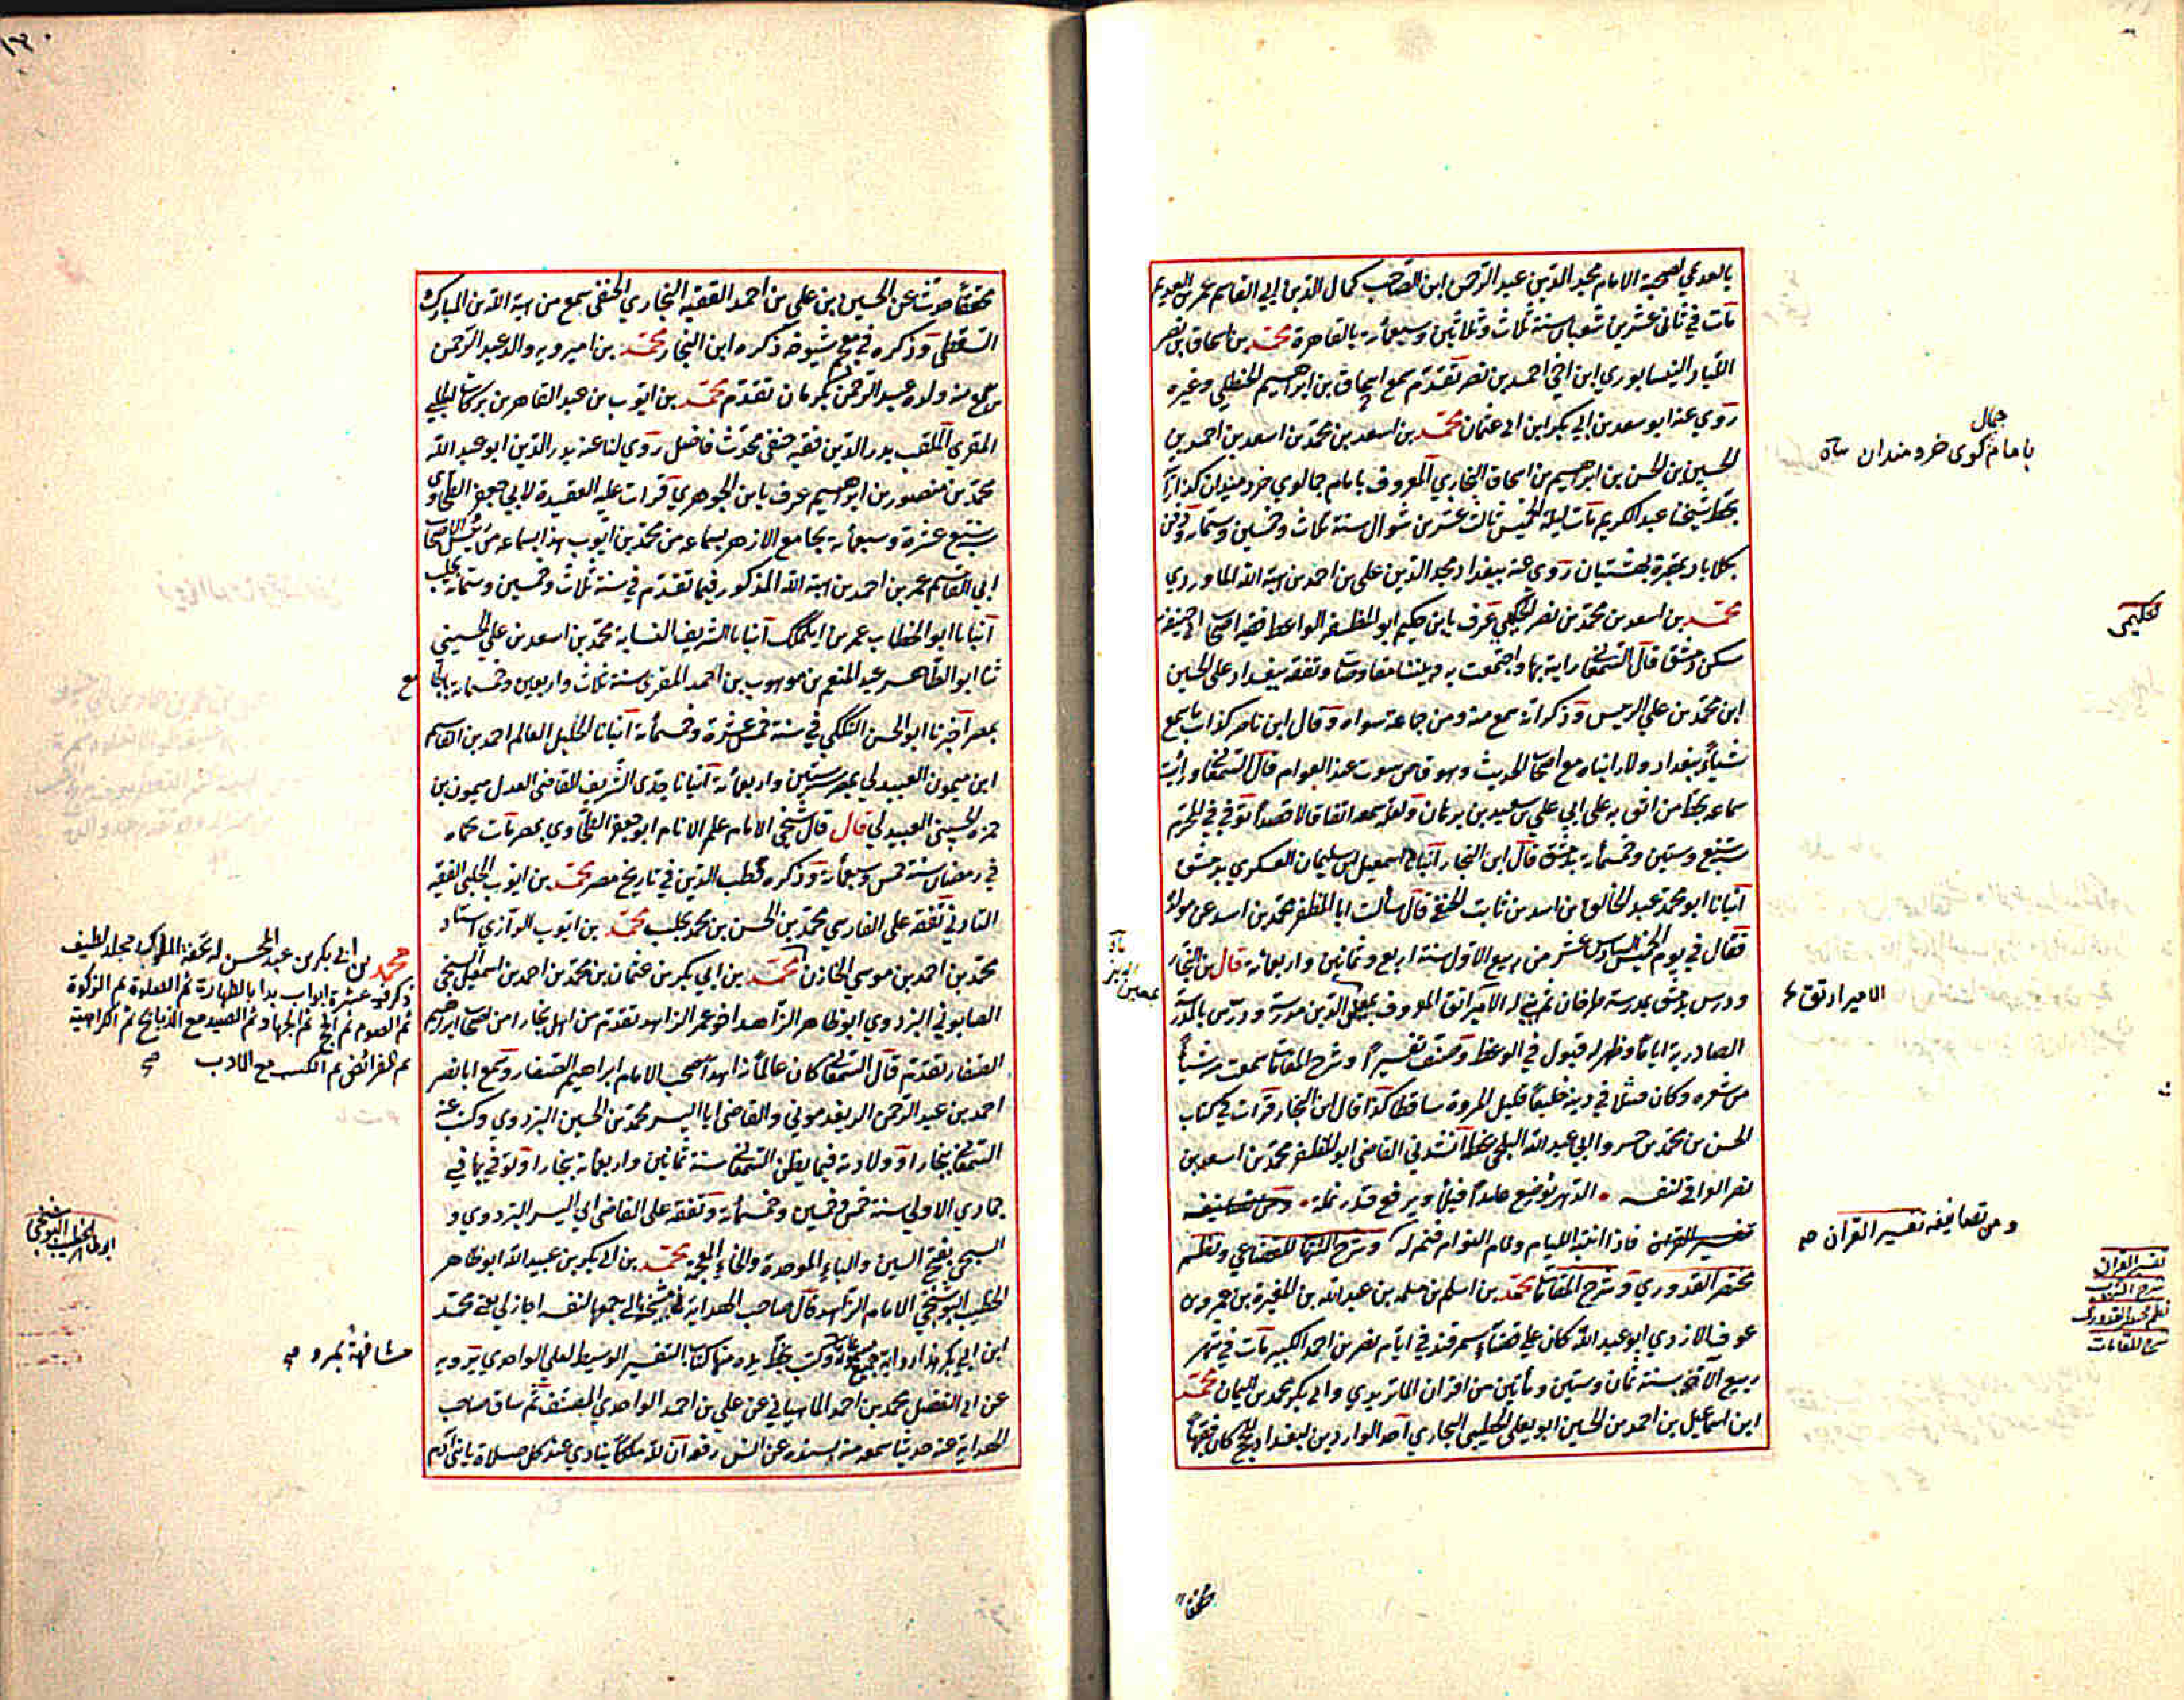 بالعديمي لصحبة الامام مجد الدين عبد الرحمن ابن الصاحب كمال الدين ابي القاسم عمر بن العديم
مات في ثاني عشرين شعبان سنة ثلاث وثلاثين وسبعمائة بالقاهرة محمد بن اسحاق بن نصر
اللباد النيسابوري ابن اخي احمد بن نصر تقدم سمع اسحاق بن ابراهيم الحنظلي وغيره
روي عنه ابو سعد بن ابي بكر ابن ابي عثمان محمد بن اسعد بن محمد بن اسعد بن احمد بن
الحسين بن الحسن بن ابراهيم بن اسحاق البخاري المعروف بامام جمالوي خردمندان كذا رأيته
بخط شيخنا عبد الكريم مات ليلة الخميس ثالث عشر من شوال سنة ثلاث وخمسين وستمائة ودفن
بكلاباد بمقبرة بهشتيان روي عنه ببغداد مجد الدين علي بن احمد بن هبة الله الماوردي
محمد بن اسعد بن محمد بن نصر الحكيمي عرف بابن حكيم ابو المظفر الواعظ فقيه اصحاب ابي حنيفة
سكن دمشق قال السمعاني رايته بها واجتمعت به وبيننا مفاوضات وتفقه ببغداد علي الحسين
ابن محمد بن علي الزينبي وذكر انه سمع منه ومن جماعة سواه وقال ابن ناصر كذاب ما سمع
شيأ ببغداد ولا رايناه مع اصحاب الحديث وهو قاص سوت عند العوام قال السمعاني ورايت
سماعه بخط من اثق به علي ابي علي بن سعيد بن نبهان ولعله سمعه اتفاقا لا قصدا توفي في المحرم
سنة سبع وستين وخمسمائة بدمشق قال ابن النجار انبانا اسمعيل بن سليمان العسكري بدمشق
انبانا ابو محمد عبد الخالق بن اسد بن ثابت الحنفي قال سألت ابا المظفر محمد بن اسعد عن مولده
فقال في يوم الخميس السادس عشر من ربيع الاول سنة اربع وثمانين واربعمائة قال ابن النجار
ودرس بدمشق بمدرسة طرخان ثم بني له الامير اتق المعروف بمعين الدين مدرسة ودرس بالمدرسة
الصادرية اياما وظهر له قبول في الوعظ وصنف تفسيرا وشرح المقامات سمعت منه شيأ
من شعره وكان فشلا في دينه خليعا قليل المروة ساقطا كذا قال ابن النجار قرات في كتاب
الحسن بن محمد بن خسرو ابي عبد الله البلخي بخطه انشدني القاضي ابو المظفر محمد بن اسعد بن
نصر العراقي لنفسه الدهر يوضع عامدا فيلا ويرفع قدر نملة ومن تصانيفه
تفسير القران فاذا انتبه الليام ونام النوام قم له وشرح الشهاب للقضاعي ونظم
مختصر القدوري وشرح المقامات محمد بن اسلم بن مسلمة بن عبد الله بن المغيرة بن عمرو بن
عوف الازدي ابو عبد الله كان علي قضاء سمرقند في ايام نصر بن احمد الكبير مات في شهر
ربيع الاخر سنة ثمان وستين ومأتين من اقران الماتريدي وابي بكر محمد بن اليمان محمد
ابن اسماعيل بن احمد بن الحسين ابو يعلي الخطيبي البخاري احد الواردين بغداد للحج كان فقيها
جمال
بامام كوي خردمندان
حكيمي
الامير ارتق
ومن تصانيفه تفسير القران صح
تفسير القران
شرح الشهاب
نظم مختصر القدوري
شرح المقامات
محققا
محققا حدث عن الحسين بن علي بن احمد الفقيه البخاري الحنفي سمع من هبة الله بن المبارك
السقطي وذكره في معجم شيوخه ذكره ابن النجار محمد بن اميرويه والد عبد الرحمن
سمع منه ولده عبد الرحمن بكرمان تقدم محمد بن ايوب بن عبد القاهر بن بركات الحلبي
المقري الملقب بدر الدين فقيه حنفي محدث فاضل روي لنا عنه بدر الدين ابو عبد الله
محمد بن منصور بن ابراهيم عرف بابن الجوهري قرات عليه العقيدة لابي جعفر الطحاوي
سنة تسع عشرة وسبعمائة بجامع الازهر بسماعه من محمد بن ايوب هذا بسماعه من رئيس الاصحاب
ابي القاسم عمر بن احمد بن هبة الله المذكور فيما تقدم في سنة ثلاث وخمسين وستمائة بحلب
انبانا ابو الخطاب عمر بن ايلملك انبانا الشريف النسابة محمد بن اسعد بن علي الحسيني
ثنا ابو الطاهر عبد المنعم بن موهوب بن احمد المقري سنة ثلاث واربعين وخمسمائة بالجامع
بمصر اخبرنا ابو الحسن التككي في سنة خمس عشرة وخمسمائة انبانا الجليل العالم احمد بن القاسم
ابن ميمون العبيدلي بمصر ستين واربعمائة انبانا جدي الشريف القاضي العدل ميمون بن
حمزة الحسيني العبيدلي قال قال شيخي الامام علم الانام ابو جعفر الطحاوي بمصر مات بحماه
في رمضان سنة خمس وسبعمائة وذكره قطب الدين في تاريخ مصر محمد بن ايوب الحلبي الفقيه
التادفي تفقه علي الفارسي محمد بن الحسن بن محمد بحلب محمد بن ايوب الرازي استاد
محمد بن احمد بن موسي الخازن محمد بن ابي بكر بن عثمان بن محمد بن احمد بن اسمعيل السبخي
الصابوني البزدوي ابو طاهر الزاهد اخو عمر الزاهد تقدم من اهل بخارا من اصحاب ابراهيم
الصفار تقدم قال السمعاني كان عالما زاهدا صحب الامام ابراهيم الصفار وسمع ابا نصر
احمد بن عبد الرحمن الريغدموني والقاضي ابا اليسر محمد بن الحسين البزدوي وكتب عنه
السمعاني ببخارا وولادته فيما يظن السمعاني سنة ثمانين واربعمائة ببخارا وتوفي بها في
جمادي الاولي سنة خمس وخمسين وخمسمائة وتفقه علي القاضي ابي اليسر البزدوي و
السبخي بفتح السين والباء الموحدة والخاء المعجمة محمد بن ابي بكر بن عبيد الله ابو طاهر
الخطيب البوشنجي الامام الزاهد قال صاحب الهداية في مشيخته التي جمعها لنفسه اجاز لي يعني محمد
ابن ابي بكر هذا رواية جميع مسموعاته وكتب بخط يده منها كتاب التفسير الوسيط لعلي الواحدي يرويه
عن ابي الفضل محمد بن احمد الماهياني عن علي بن احمد الواحدي المصنف ثم ساق صاحب
الهداية عنه حديثا سمعه منه بسنده عن انس رفعه ان لله ملكا ينادي عند كل صلاة يا بني ادم
محمد بن ابي بكر بن عبد المحسن له تحفة الملوك مجلد لطيف
ذكر فيه عشرة ابواب بدا بالطهارة ثم الصلوة ثم الزكوة
ثم الصوم ثم الحج ثم الجهاد ثم الصيد مع الذبائح ثم الكراهية
ثم الفرائض ثم الكسب مع الادب صح
ابو طاهر
الخطيب البوشنجي
مشافهة بمرو صح
١٣٠